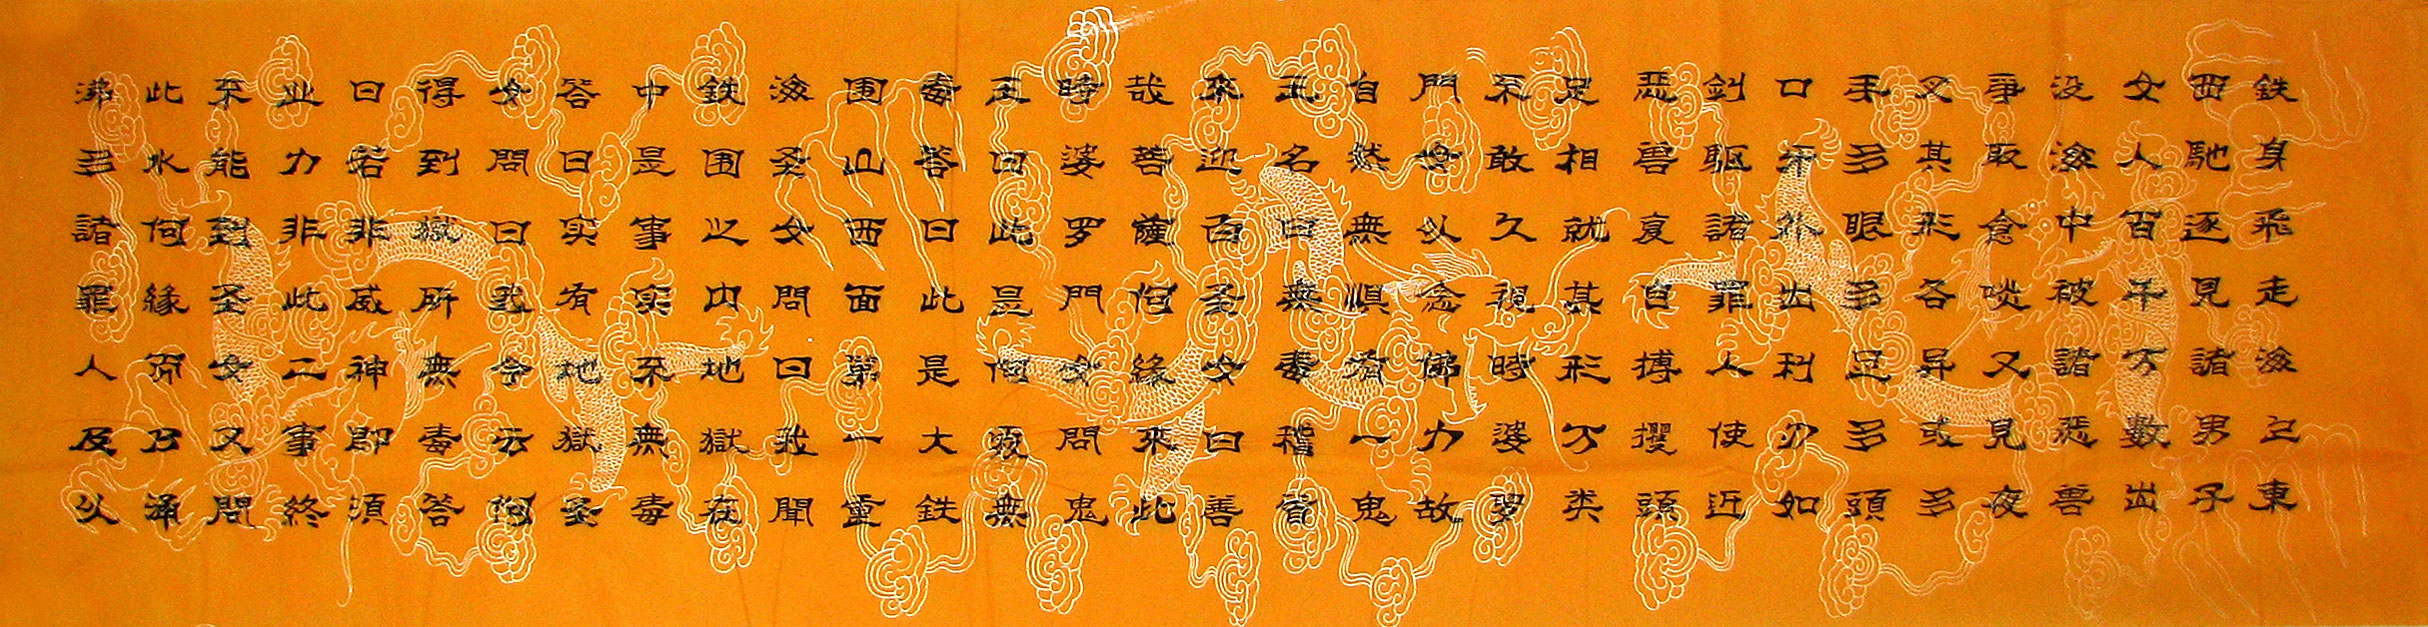 鉄身飛走海上東
西馳逐見諸男子
女人百千万數出
没海中被諸惡兽
爭取食啖又見夜
叉其形各异或多
手多眼多足多頭
口牙外出利刃如
剑驅諸罪人使近
惡兽复自搏攫頭
足相就其形万类
不敢久視時婆罗
門女以念佛力故
自然無惧有一鬼
王名曰無毒稽首
來迎白圣女曰善
哉菩薩何緣來此
時婆罗門女問鬼
王曰此是何處無
毒答曰此是大鉄
围山西面第一重
海圣女問曰我聞
鉄围之内地獄在
中是事实不無毒
答曰实有地獄圣
女問曰我今云何
得到獄所無毒答
曰若非威神即須
业力非此二事終
不能到圣女又問
此水何緣而乃涌
沸多諸罪人及以